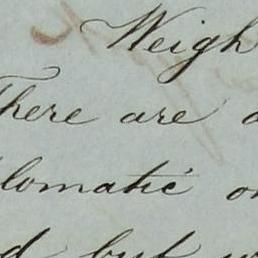 Weigh
There are a
lomatic o
d but w